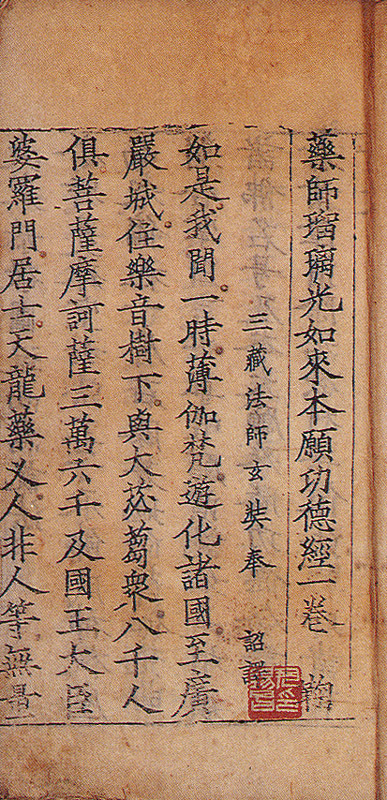 藥師瑠璃光如來本願功德經一卷
三藏法師玄奘奉 詔譯
如是我聞一時薄伽梵遊化諸國至廣
嚴城住樂音樹下與大苾蒭衆八千人
俱菩薩摩訶薩三萬六千及國王大臣
婆羅門居士天龍藥叉人非人等無量